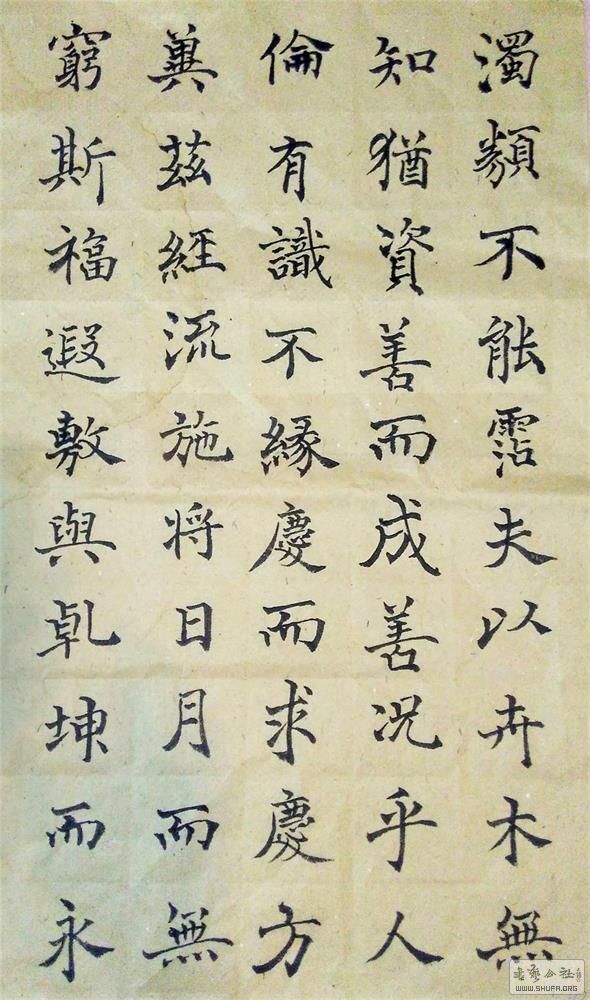 濁類不能霑夫以卉木無
知猶資善而成善况乎人
倫有識不緣慶而求慶方
冀茲經流施将日月而無
窮斯福遐敷與乹坤而永
WWW.SHUFA.ORG